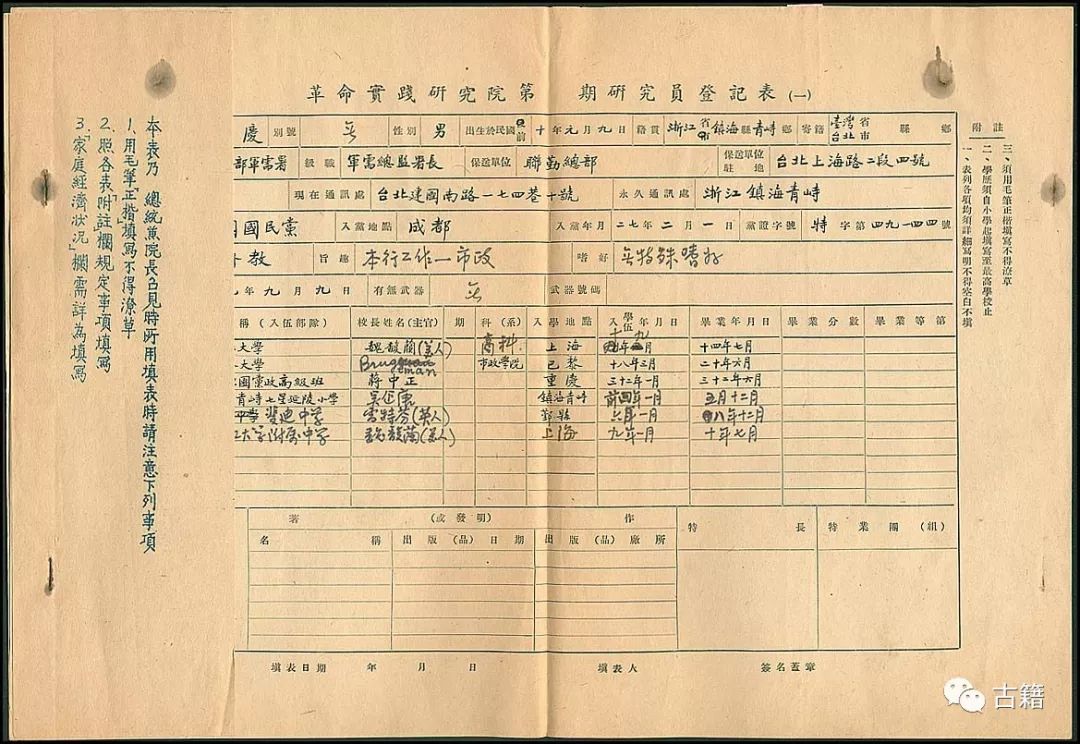 革命實踐研究院第 期研究員登記表（一）
慶 別號 無 性別 男 出生於民國前 十年元月九日 籍貫 浙江省鎮海縣青峙鄉 寄籍 臺灣省台北市 縣 鄉
部軍需署 級職 軍需總監署長 保送單位 聯勤總部 保送單位駐地 台北上海路二段四號
現在通訊處 台北建國南路一七四巷十號 永久通訊處 浙江鎮海青峙
國民黨 入黨地點 成都 入黨年月 二七年二月一日 黨證字號 特字第四九一四四號
教 旨趣 本行工作—市政 嗜好 無特殊嗜好
年九月九日 有無武器 無 武器號碼
稱（入伍部隊） 校長姓名（主官） 期 科（系） 入學地點 入學伍年月日 畢業年月日 畢業分數 畢業等第
大學 魏馥蘭（美人） 商科 上海 十四年七月
大學 市政學院 巴黎 十八年三月 二十年六月
國黨政高級班 蔣中正 重慶 三十二年一月 三十二年六月
青峙七星延陵小學 鎮海青峙 前四年一月 五月十二月
斐迪中學 雷特芬（英人） 鄞縣 六年一月 八年十二月
大學附属中学 魏馥蘭（美人） 上海 九年一月 十年七月
著（或發明）作 特長 特業團（組）
名稱 出版（品）日期 出版（品）廠所
填表日期 年 月 日 填表人 簽名蓋章
附註
一、表列各項均須詳細寫明不得空白不填
二、學歷須自小學起填寫至最高學校止
三、須用毛筆正楷填寫不得潦草
本表乃 總統兼院長召見時所用填表時請注意下列事項
1、用毛筆正楷填寫不得潦草
2、照各表「附註」欄規定事項填寫
3、「家庭經濟狀況」欄需詳為填寫
古籍